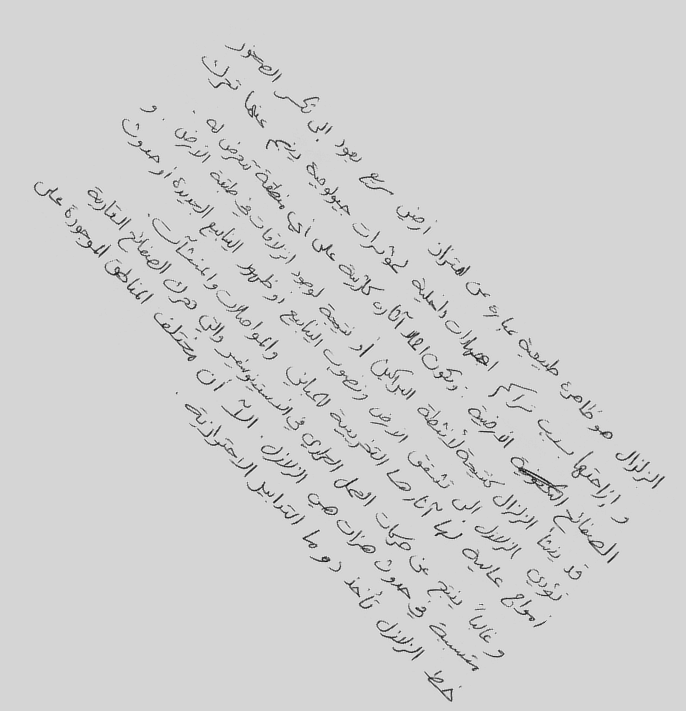 الزلزال هو ظاهرة طبيعية عبارة عن اهتزاز أرضي سريع يعود إلى تكسر الصخور
و إزاحتها بسبب تراكم اجهادات داخلية لمؤثرات جيولوجية ينجم عنها تحرك
الصفائح الأرضية. وتكون لها آثار كارثية على أي منطقة تتعرض له.
قد ينشأ الزلزال كنتيجة لأنشطة البراكين أو نتيجة لوجود انزلاقات في طبقة الأرض. و
تؤدي الزلازل الى تشقق الأرض ونضوب الينابيع أو ظهور الينابيع الجديدة أو حدوث
أمواج عالية آثارها التخريبية للمباني والمواصلات والمنشآت.
وغالباً ينتج عن حركات الحمل الحراري في الأستينوسفير والتي تحرك الصفائح القارية
متسببة في حدوث هزات هي الزلازل. الا أن مختلف المناطق الموجودة على
خط الزلازل تأخذ دوما التدابير الاحترازية.